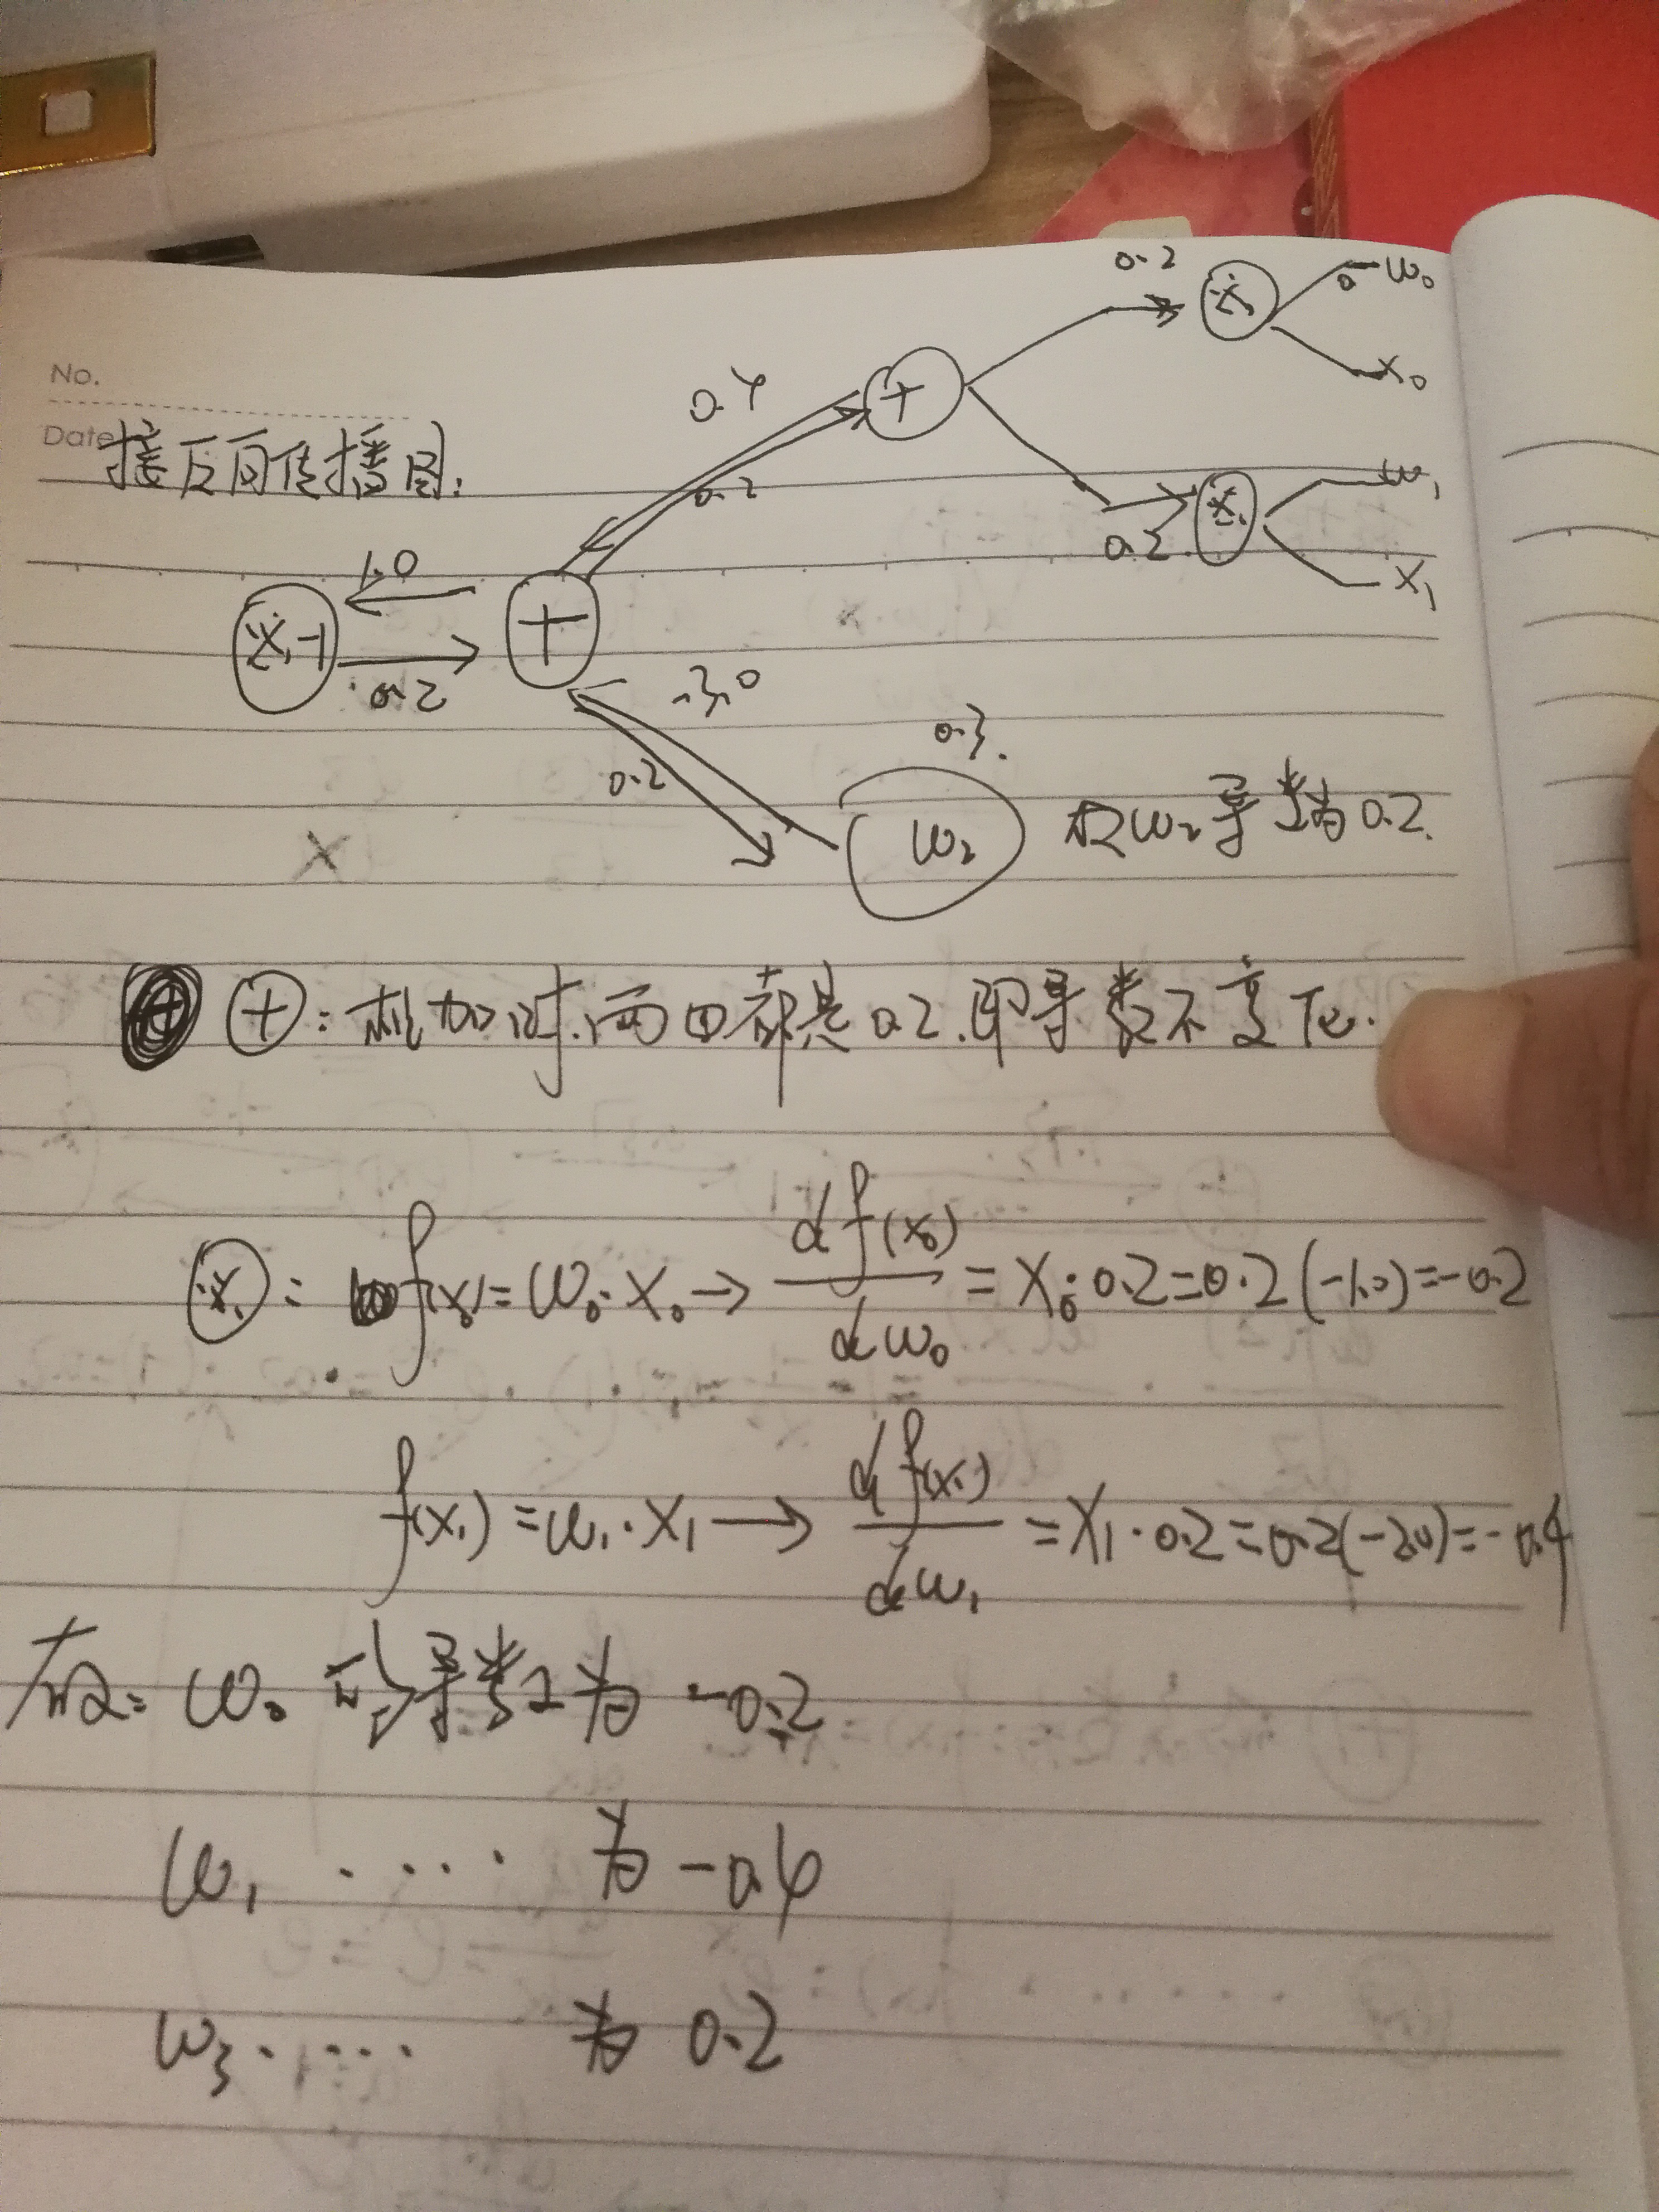 No.
Date
接反向传播图:
0.2
*
w₀
x₀
0.4
+
0.2
*
w₁
x₁
0.2
1.0
*-1
+
0.2
-3.0
0.2
0.3.
w₂
故w₂导数为0.2.
x
+ : 相加时.两口都是0.2.即导数不变化.
* : f(x₀)=w₀·x₀→ df(x₀)/dw₀ = x₀·0.2=0.2(-1.0)=-0.2
f(x₁)=w₁·x₁→ df(x₁)/dw₁ =x₁·0.2=0.2(-2.0)=-0.4
故: w₀ 的导数为 -0.2
w₁ ···· 为 -0.4
w₃ ···· 为 0.2